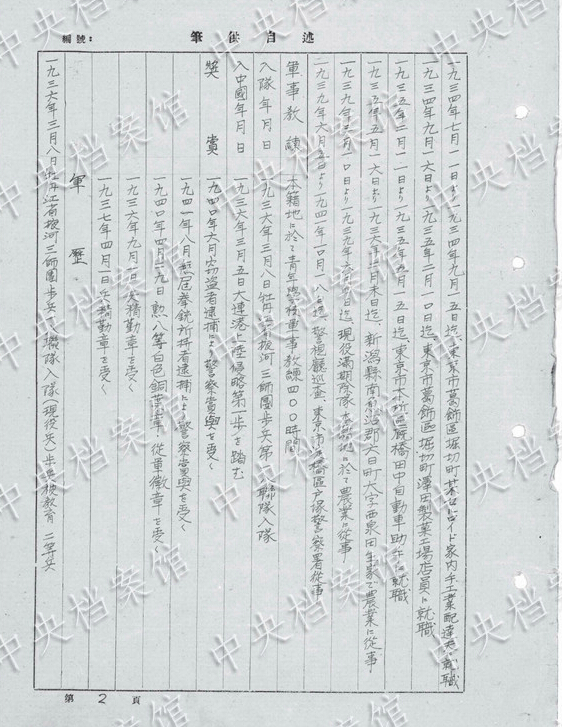 編號：
述自供筆
一九三四年七月一一日より一九三四年九月一五日迄、東京市葛飾區堀切町 セルロイド家内手工業配達夫に就職
一九三四年九月一六日より一九三五年二月一〇日迄、東京市葛飾區堀切町澤田製菓工場店員に就職
一九三五年二月一一日より一九三五年五月一五日迄、東京市本所區厩橋田中自動車助手に就職
一九三五年五月一六日より一九三六年二月末日迄、新潟縣南 郡大日町大字西泉田生家で農業に從事
一九三九年三月一〇日より一九三九年六月 日迄、現役滿期除隊本籍地に於て農業に從事
一九三九年六月 日より一九四一年一〇月一八日迄、警視廳巡査、東京市 橋區戸塚警察署從事
軍事教練 本籍地に於て青年學校軍事教練四〇〇時間
入隊年月日 一九三六年三月八日牡丹江省掖河三師團步兵第 八聯隊入隊
入中國年月日 一九三六年三月五日大連港上陸侵略第一步を踏む
獎賞 一九四〇年六月窃盗者逮捕により警察賞與を受く
一九四一年八月無屆拳銃所持者逮捕により警察賞與を受く
一九四〇年四月二九日勳八等白色桐葉章、從軍徽章を受く
一九三六年九月一日 精勤章を受く
一九三七年四月一日 精勤章を受く
軍歷
一九三六年三月八日牡丹江省掖河三師團步兵一八聯隊入隊（現役兵）步兵 教育 二等兵
第2頁
中央档案馆